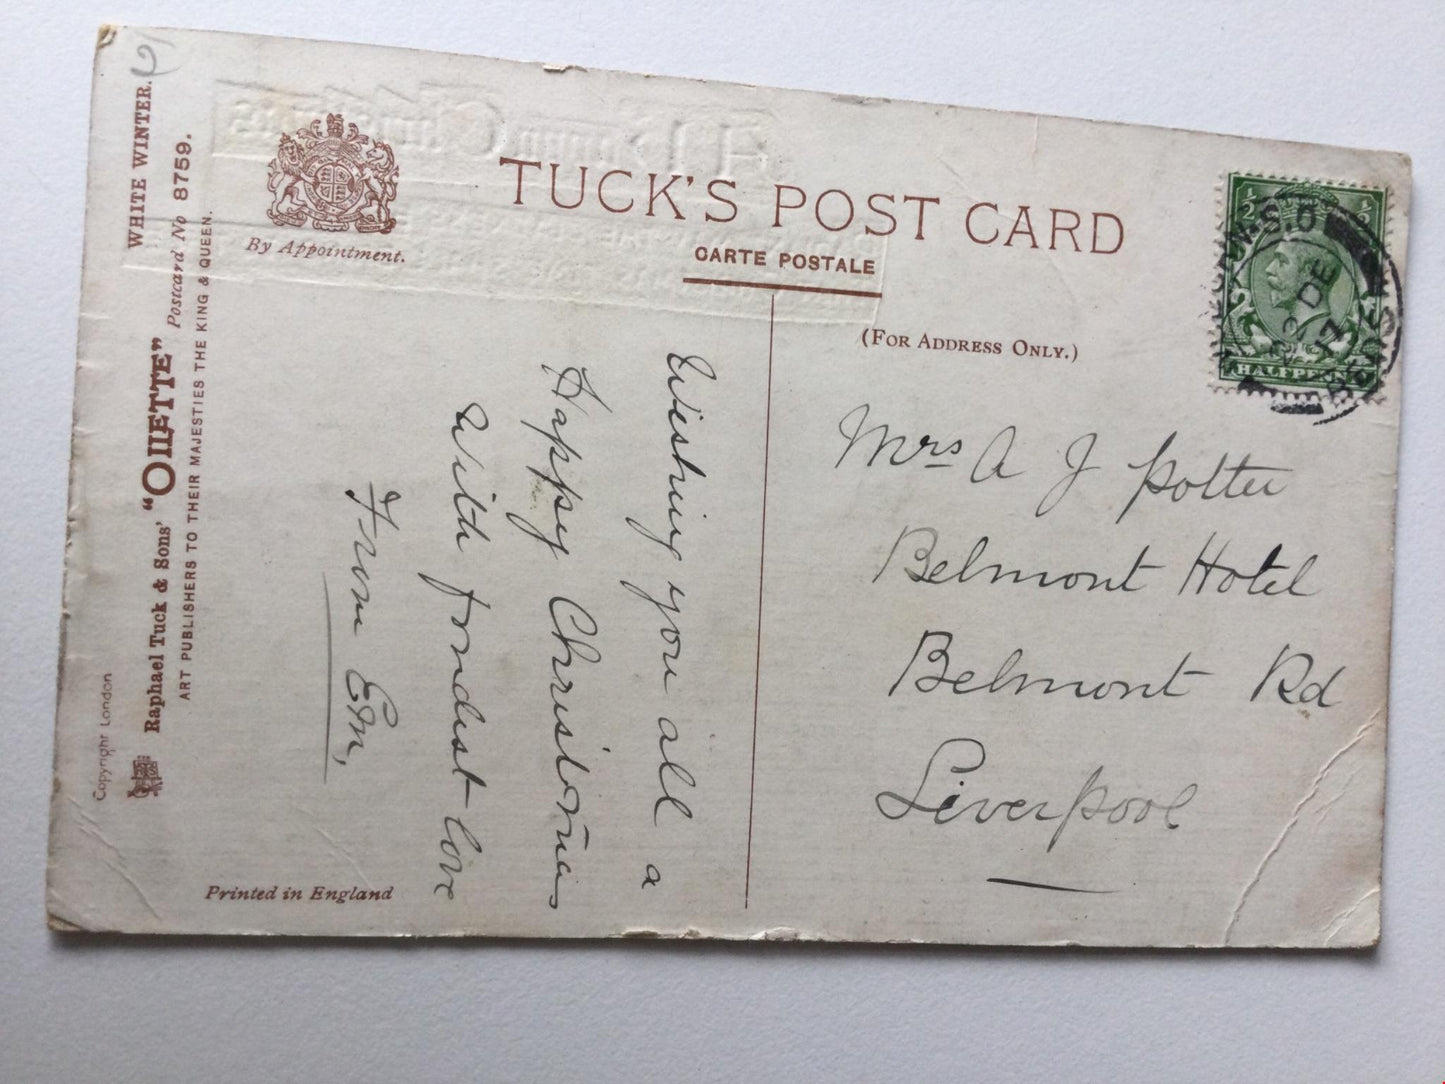 WHITE WINTER.
Raphael Tuck & Sons' "OILETTE" Postcard No 8759.
ART PUBLISHERS TO THEIR MAJESTIES THE KING & QUEEN.
Copyright London
By Appointment.
TUCK'S POST CARD
CARTE POSTALE
(FOR ADDRESS ONLY.)
½ ½
HALFPENNY
12 DE
Wishing you all a
Happy Christmas
With fondest love
From Em,
Mrs A J Potter
Belmont Hotel
Belmont Rd
Liverpool
Printed in England